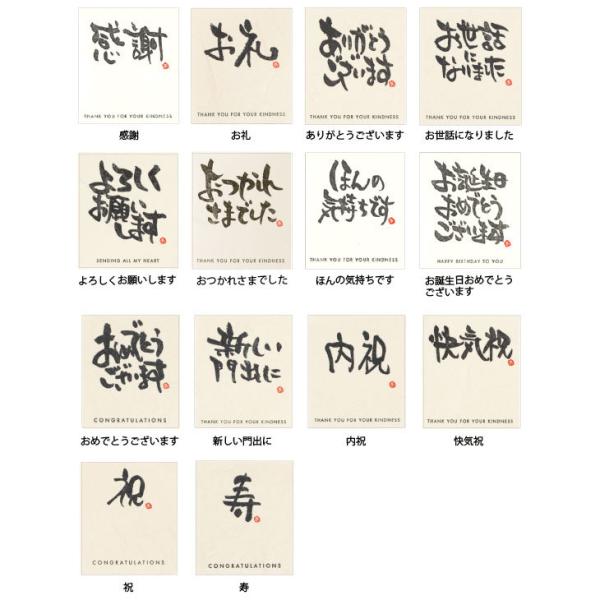 感謝
THANK YOU FOR YOUR KINDNESS
感謝
お礼
THANK YOU FOR YOUR KINDNESS
お礼
ありがとう
ございます
THANK YOU FOR YOUR KINDNESS
ありがとうございます
お世話
に
なりました
THANK YOU FOR YOUR KINDNESS
お世話になりました
よろしく
お願い
します
SENDING ALL MY HEART
よろしくお願いします
おつかれ
さまでした
THANK YOU FOR YOUR KINDNESS
おつかれさまでした
ほんの
気持ちです
THANK YOU FOR YOUR KINDNESS
ほんの気持ちです
お誕生日
おめでとう
ございます
HAPPY BIRTHDAY TO YOU
お誕生日おめでとう
ございます
おめでとう
ございます
CONGRATULATIONS
おめでとうございます
新しい
門出に
THANK YOU FOR YOUR KINDNESS
新しい門出に
内祝
THANK YOU FOR YOUR KINDNESS
内祝
快気祝
THANK YOU FOR YOUR KINDNESS
快気祝
祝
CONGRATULATIONS
祝
寿
CONGRATULATIONS
寿